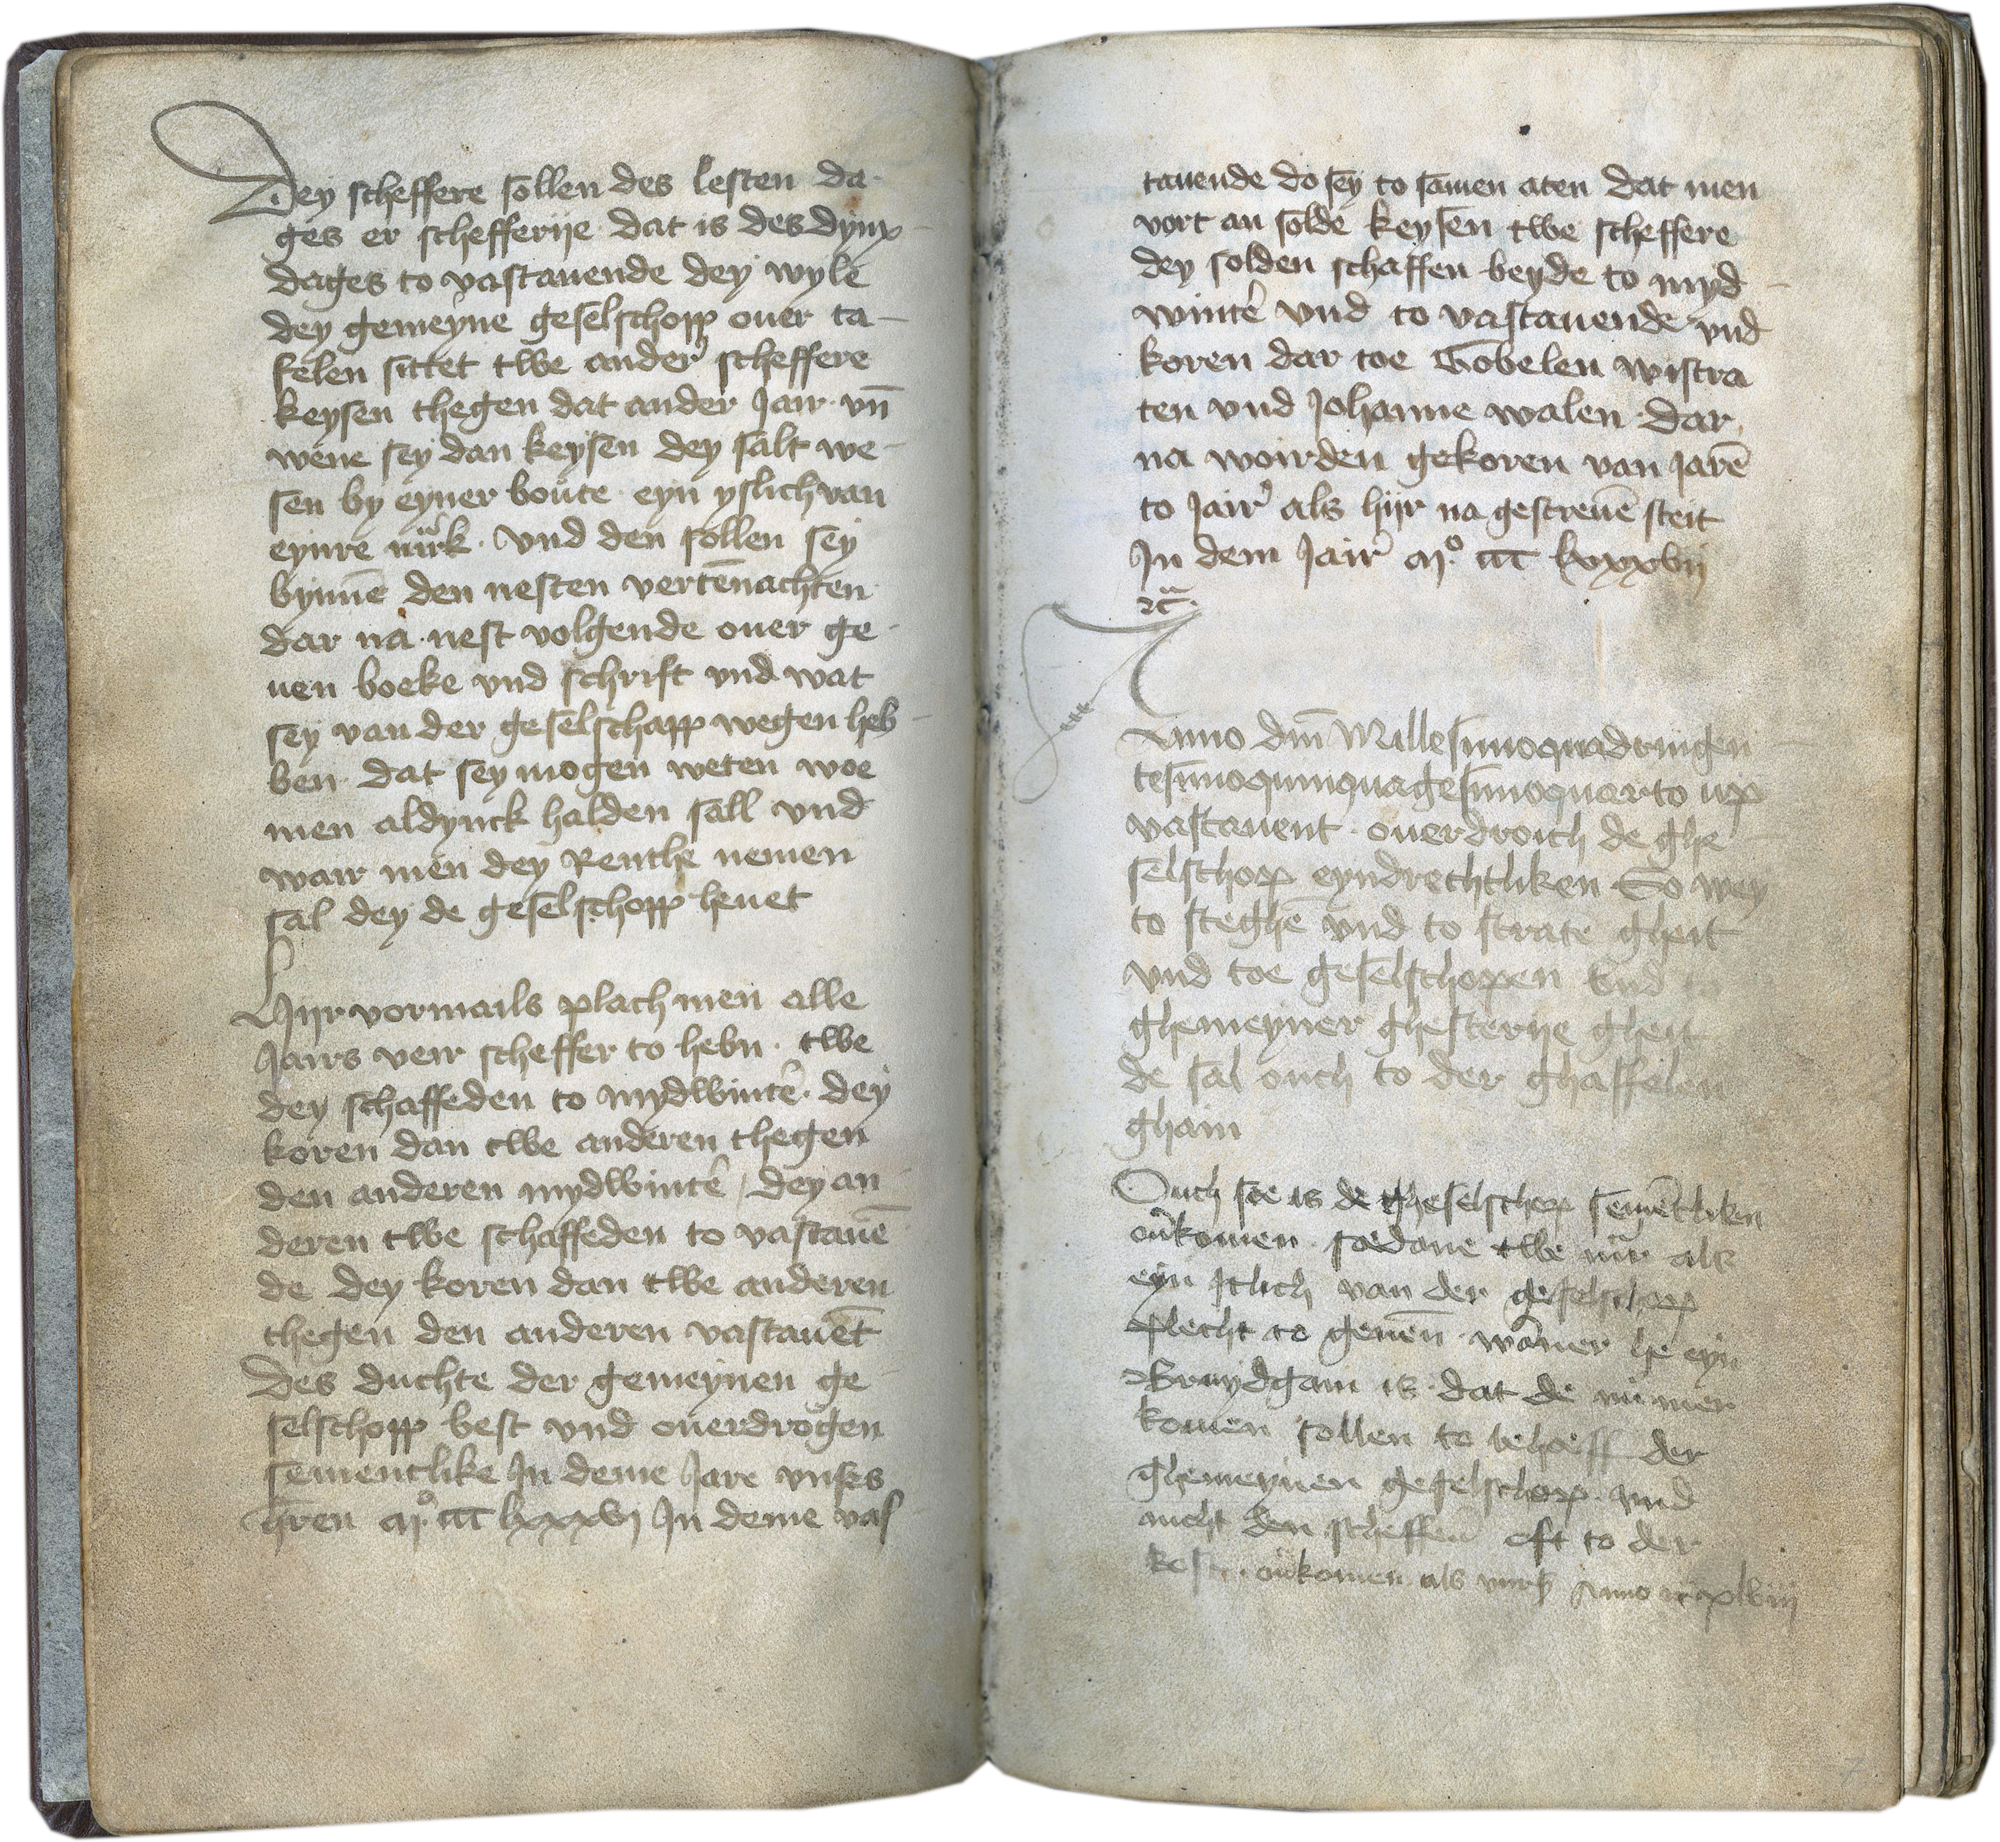 Dey scheffere sollen des lesten da-
ges er schefferije dat is des dynx-
dages to vastauende dey wyle
dey gemeyne geselschopp ouer ta-
felen sittet twe ander scheffere
keysen thegen dat ander Jair vn̄
wene sey dan keysen dey salt we-
sen by eyner boute eyn yslich van
eynre mrͣk. Vnd den sollen sey
bynnē den nesten vertēnachten
dar na nest volgende ouer ge-
uen boeke vnd schrift vnd wat
sey van der geselschapp wegen heb-
ben dat sey mogen weten woe
men aldynck halden sall vnd
wair men dey Renthe nemen
sal dey de geselschopp heuet
Hijr vormails plach men alle
Jairs veir scheffer to hebn. twe
dey schaffeden to mydwintē. dey
koren dan twe anderen thegen
den anderen mydwintē / dey an
deren twe schaffeden to vastauē
de dey koren dan twe anderen
thegen den anderen vastauēt
Des duchte der gemeynen ge-
selschopp best vnd ouerdrogen
sementlike In deme Jare vnses
h̄ren mͦ. cccc lxxxvj In deme vas
tauende do sey to samen aten dat men
vort an solde keysen twe scheffere
dey solden schaffen beyde to myd-
wintē vnd to vastauende vnd
koren dar toe Gobelen wistra
ten vnd Johanne walen. dar
na woirden gekoren van Jarē
to Jair als hijr na gescreuē steit
In dem Jair mͦ. ccc lxxxvij
Anno dm̄ Millesimoquadringen-
tesimoquinquagesimoquarto up
vastauent. ouerdroich de ghe-
selschop eyndrechtliken So wey
to steghē vnd to stratē gheit
vnd toe geselschopen vnd
ghemeyner ghesterije gheit
de sal ouch to der ghaffelen
ghain
Ouch soe is de gheselschop semētliken
ouͤkomen. soedane twe mrͣ als
eyn Itlich van der geselschopp
plecht to geuen. wāner he eyn
Bruydgam is. dat de nu mer
komen sollen to behoeff der
ghemeynen geselschop. vnd
nicht den scheffern oft to der
kost. ouͤkomen als vurß Anno xlviij